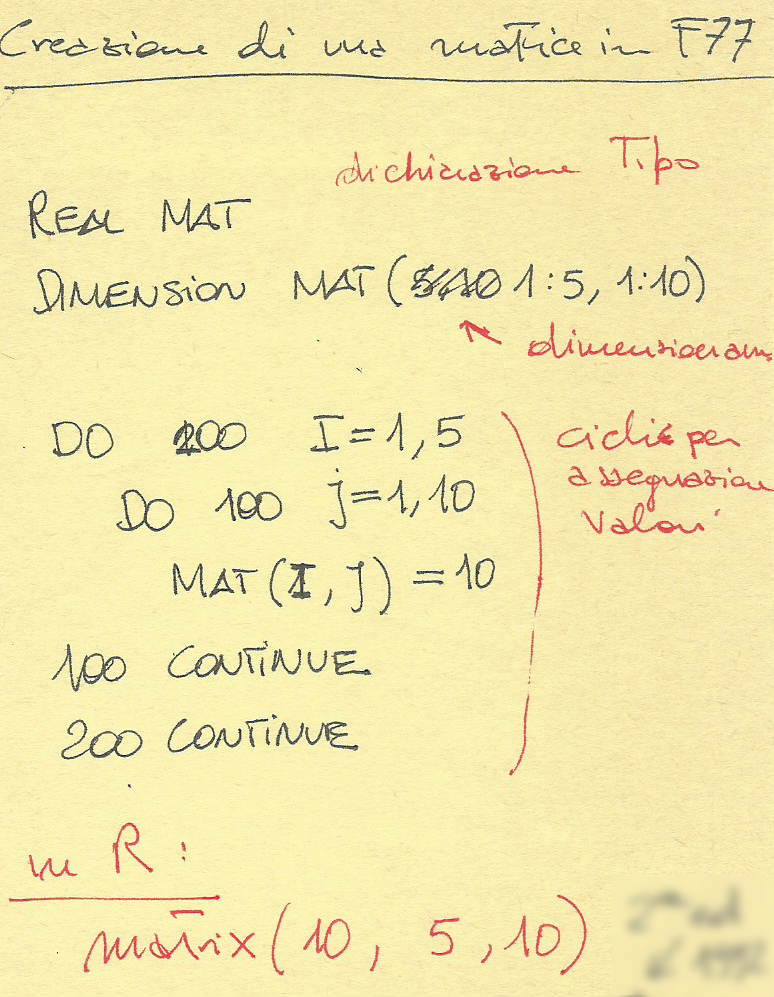 Creazione di una matrice in F77
dichiarazione Tipo
REAL MAT
DIMENSION MAT (1:5, 1:10)
dimensionam
DO 200 I=1,5
DO 100 j=1,10
MAT(I, J) =10
100 CONTINUE
200 CONTINUE
cicli per
assegnazione
Valori
in R :
matrix(10, 5, 10)